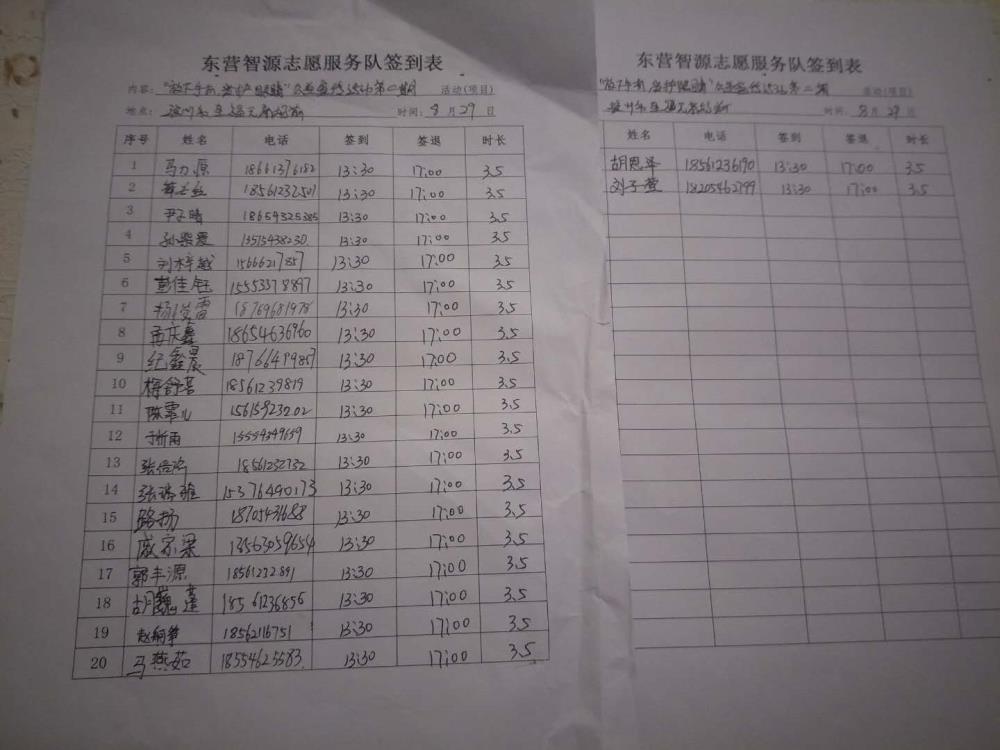 东营智源志愿服务队签到表
内容：“放下手机，爱护眼睛”公益宣传活动第二期 活动(项目)
地点： 时间：8月29日
序号 姓名 电话 签到 签退 时长
1 马力源 18661376182 13:30 17:00 3.5
2 18561232501 13:30 17:00 3.5
3 尹子晴 18659325385 13:30 17:00 3.5
4 孙紫爱 13:30 17:00 3.5
5 刘梓越 15666217857 13:30 17:00 3.5
6 彭佳钰 15553378897 13:30 17:00 3.5
7 18769681978 13:30 17:00 3.5
8 孟庆鑫 18654636960 13:30 17:00 3.5
9 纪鑫晨 18766499857 13:30 17:00 3.5
10 梅舒菩 18561239819 13:30 17:00 3.5
11 陈霏儿 15615923202 13:30 17:00 3.5
12 于忻雨 13:30 17:00 3.5
13 18561232732 13:30 17:00 3.5
14 张瑞雅 15376490173 13:30 17:00 3.5
15 路扬 13:30 17:00 3.5
16 戚家梁 13563059654 13:30 17:00 3.5
17 郭丰源 13:30 17:00 3.5
18 18561236856 13:30 17:00 3.5
19 18562116751 13:30 17:00 3.5
20 马燕茹 18554625583 13:30 17:00 3.5
东营智源志愿服务队签到表
“放下手机，爱护眼睛”公益宣传活动第二期 活动(项目)
时间：8月29日
姓名 电话 签到 签退 时长
胡恩泽 18561236190 13:30 17:00 3.5
刘子萱 18205462799 13:30 17:00 3.5